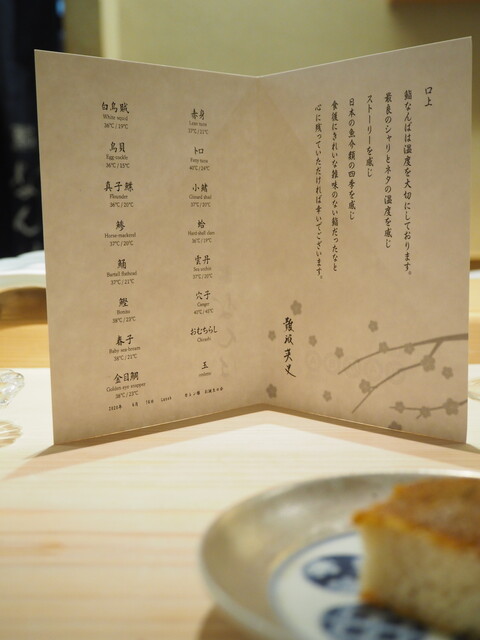 白烏賊
White squid
36℃/19℃
烏貝
Egg cockle
36℃/15℃
真子鰈
Flounder
36℃/20℃
鯵
Horse mackerel
37℃/20℃
鯒
Bartail flathead
37℃/21℃
鰹
Bonito
38℃/23℃
春子
Baby sea bream
36℃/21℃
金目鯛
Golden eye snapper
38℃/23℃
赤身
Lean tuna
37℃/21℃
トロ
Fatty tuna
40℃/25℃
小鰭
Gizzard shad
37℃/20℃
蛤
Hard-shell clam
36℃/19℃
雲丹
Sea urchin
37℃/10℃
穴子
Conger
40℃/42℃
おむちらし
Chirashi
玉
口上
鮨なんばは温度を大切にしております。
最良のシャリとネタの温度を感じ
ストーリーを感じ
日本の魚介類の四季を感じ
食後にきれいな雑味のない鮨だったなと
心に残っていただければ幸いでございます。
難波英史